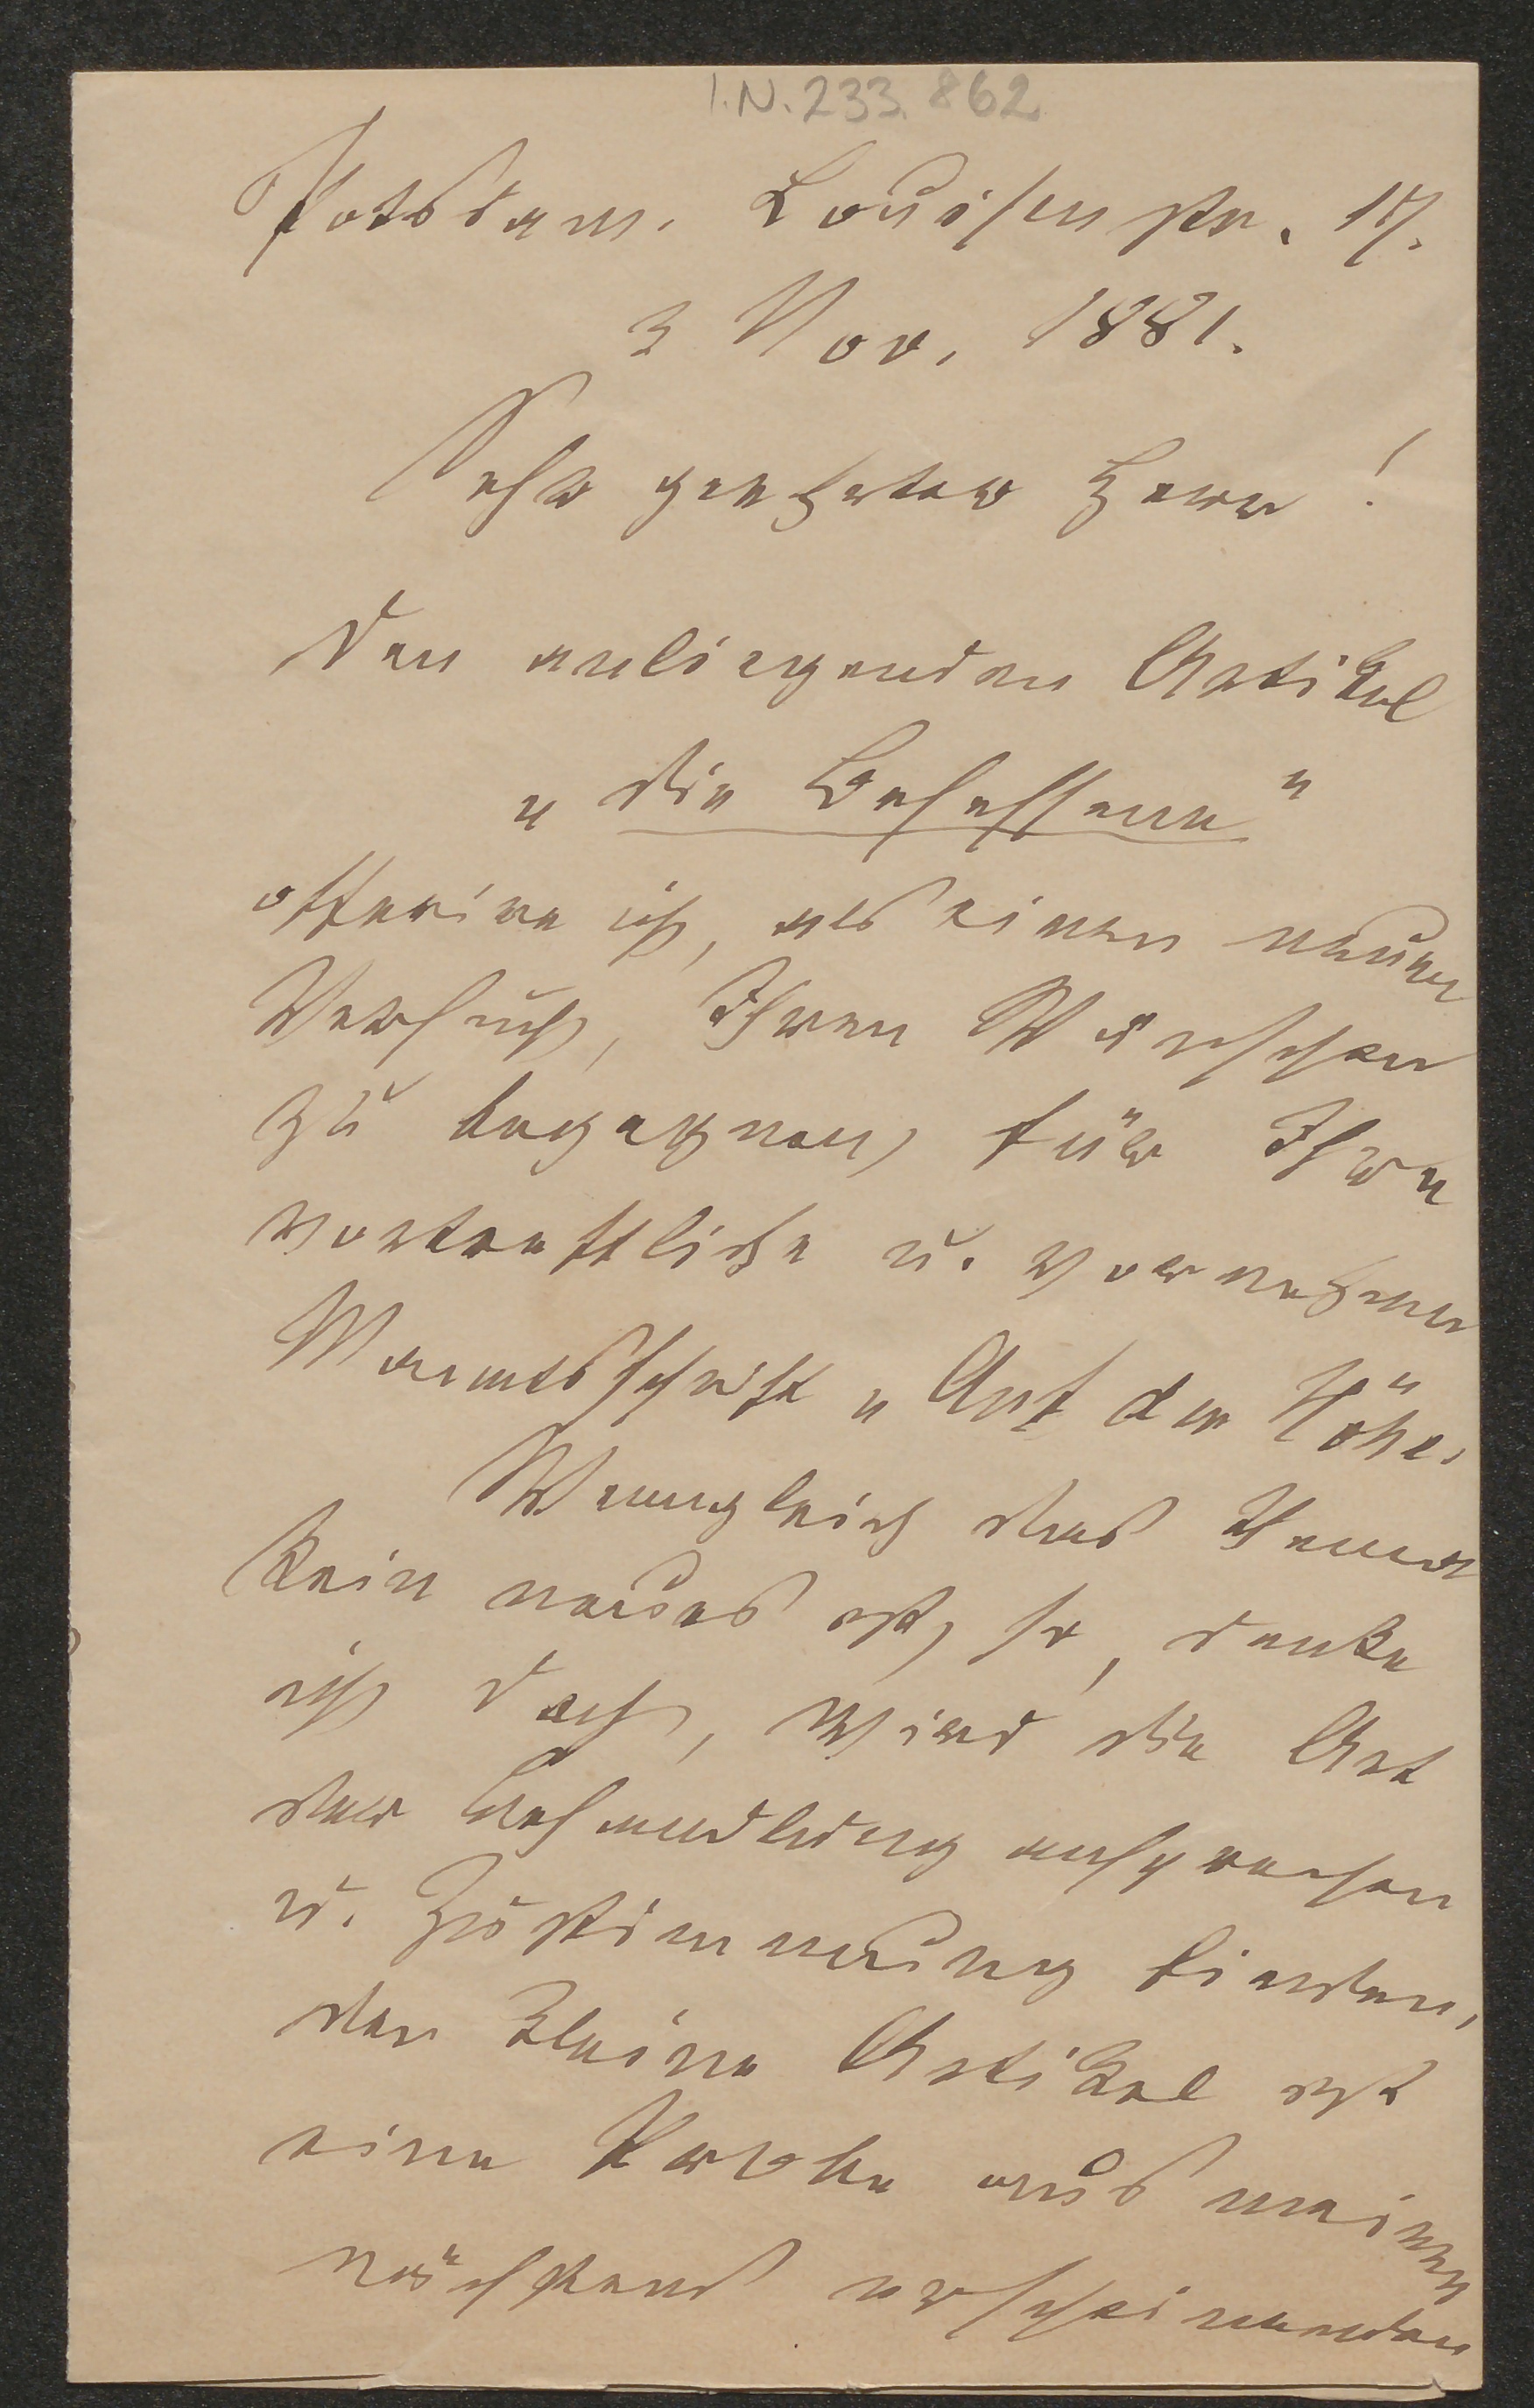 I.N. 233.862
Potsdam. Louisenstr. 17.
3 Nov. 1881.
Sehr geehrter Herr!
Den anliegenden Artikel
„die Besessene"
offerire ich, als einen neuen
Versuch, Ihren Wünschen
zu begegnen, für Ihre
vortreffliche u. vornehme
Monatsschrift „Auf der Höhe.
Wenngleich das Thema
kein neues ist, so, denke
ich doch, wird die Art
der Behandlung ansprechen
u. Zustimmung finden,
der kleine Artikel ist
eine Probe aus meinem
nächstens erscheinenden